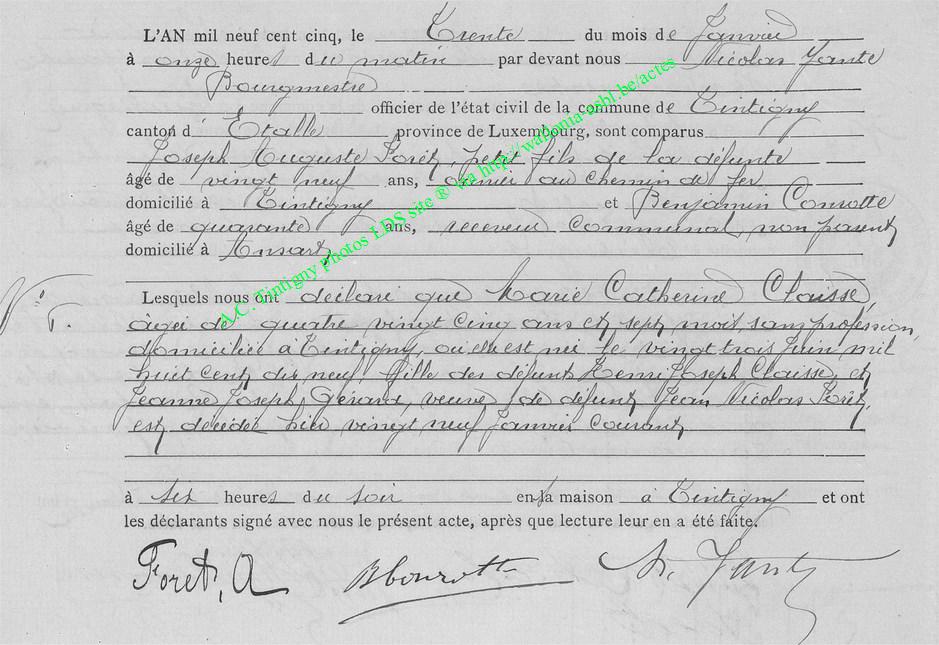 L'AN mil neuf cent cinq, le Trente du mois de Janvier
à onze heures du matin par devant nous Nicolas Jante
Bourgmestre
officier de l'état civil de la commune de Tintigny
canton d' Etalle province de Luxembourg, sont comparus
Joseph Auguste Forêt, petit fils de la défunte
âgé de vingt neuf ans, ouvrier au chemin de fer
domicilié à Tintigny et Benjamin Conrotte
âgé de quarante ans, receveur communal, non parent
domicilié à Ansart
Lesquels nous ont déclaré que Marie Catherine Claisse,
âgée de quatre vingt cinq ans et sept mois, sans profession,
domiciliée à Tintigny, où elle est née le vingt trois Juin mil
huit cent dix neuf, fille des défunts Henri Joseph Claisse et
Jeanne Joseph Gérard, veuve de défunt Jean Nicolas Forêt,
est décédée hier vingt neuf Janvier courant
à six heures du soir en sa maison à Tintigny et ont
les déclarants signé avec nous le présent acte, après que lecture leur en a été faite.
Foret, A B Conrotte N. Jante
A.C. Tintigny Photos LDS site ® via http://wallonia-asbl.be/actes